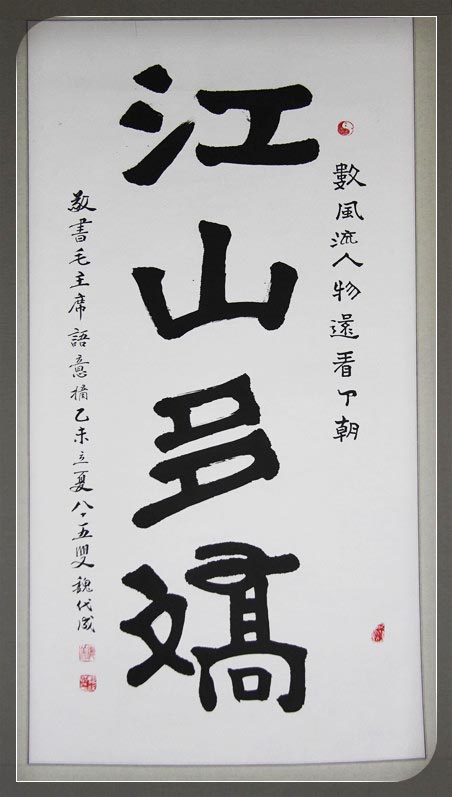 數風流人物還看今朝
江山多嬌
敬書毛主席語意摘乙未立夏八、五叟魏代成